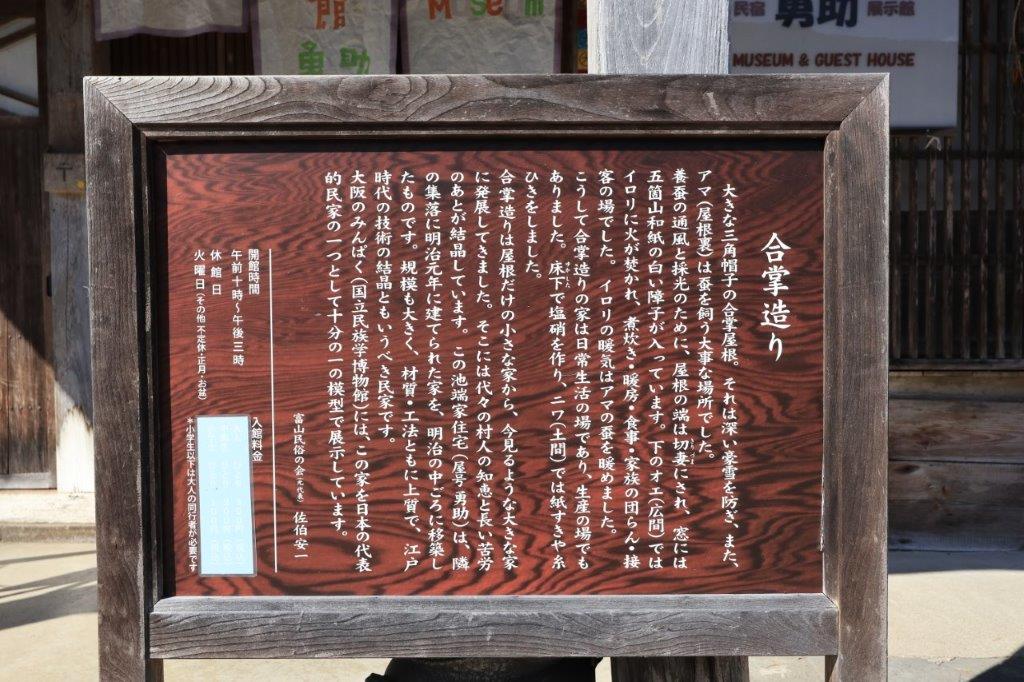 館
勇助
Museum
民宿 勇助 展示館
MUSEUM & GUEST HOUSE
合掌造り
大きな三角帽子の合掌屋根。それは深い豪雪を防ぎ、また、
アマ(屋根裏)は蚕を飼う大事な場所でした。
養蚕の通風と採光のために、屋根の端は切妻にされ、窓には
五箇山和紙の白い障子が入っています。下のオエ(広間)では
イロリに火が焚かれ、煮炊き・暖房・食事・家族の団らん・接
客の場でした。 イロリの暖気はアマの蚕を暖めました。
こうして合掌造りの家は日常生活の場であり、生産の場でも
ありました。床下で塩硝を作り、ニワ(土間)では紙すきや糸
ひきをしました。
合掌造りは屋根だけの小さな家から、今見るような大きな家
に発展してきました。そこには代々の村人の知恵と長い苦労
のあとが結晶しています。この池端家住宅(屋号勇助)は、隣
の集落に明治元年に建てられた家を、明治の中ごろに移築し
たものです。規模も大きく、材質・工法ともに上質で、江戸
時代の技術の結晶ともいうべき民家です。
大阪のみんぱく(国立民族学博物館)には、この家を日本の代表
的民家の一つとして十分の一の模型で展示しています。
富山民俗の会(元代表) 佐伯安一
開館時間
午前十時〜午後三時
休館日
火曜日(その他 不定休・正月・お盆)
入館料金
*小学生以下は大人の同行者が必要です